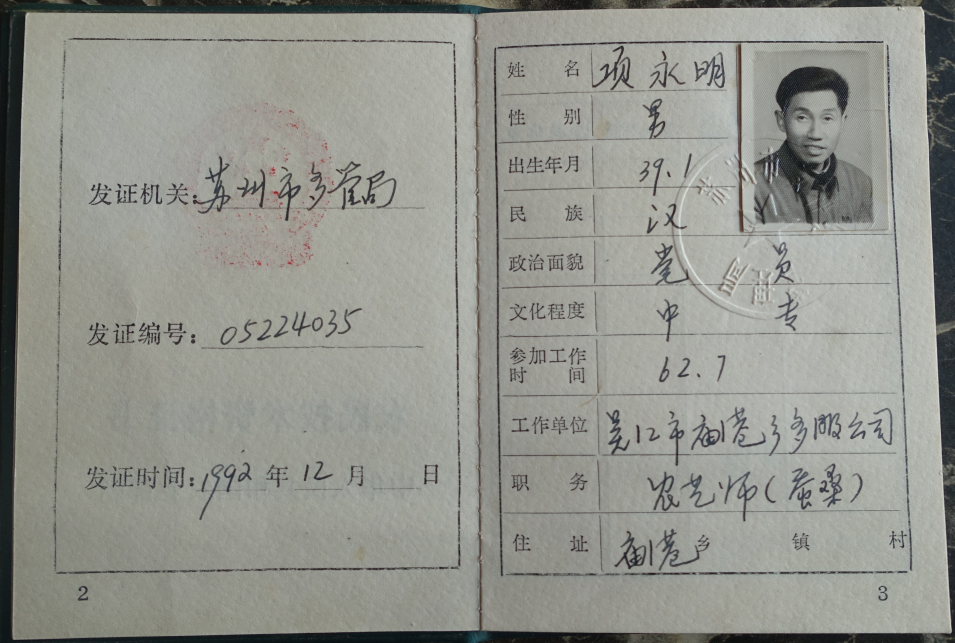 发证机关:苏州市多管局
发证编号:05224035
发证时间:1992年12月 日
2
姓 名 项永明
性 别 男
出生年月 39.1
民 族 汉
政治面貌 党员
文化程度 中专
参加工作
时 间 62.7
工作单位 吴江市庙港乡多服公司
职 务 农艺师(蚕桑)
住 址 庙港乡 镇 村
3